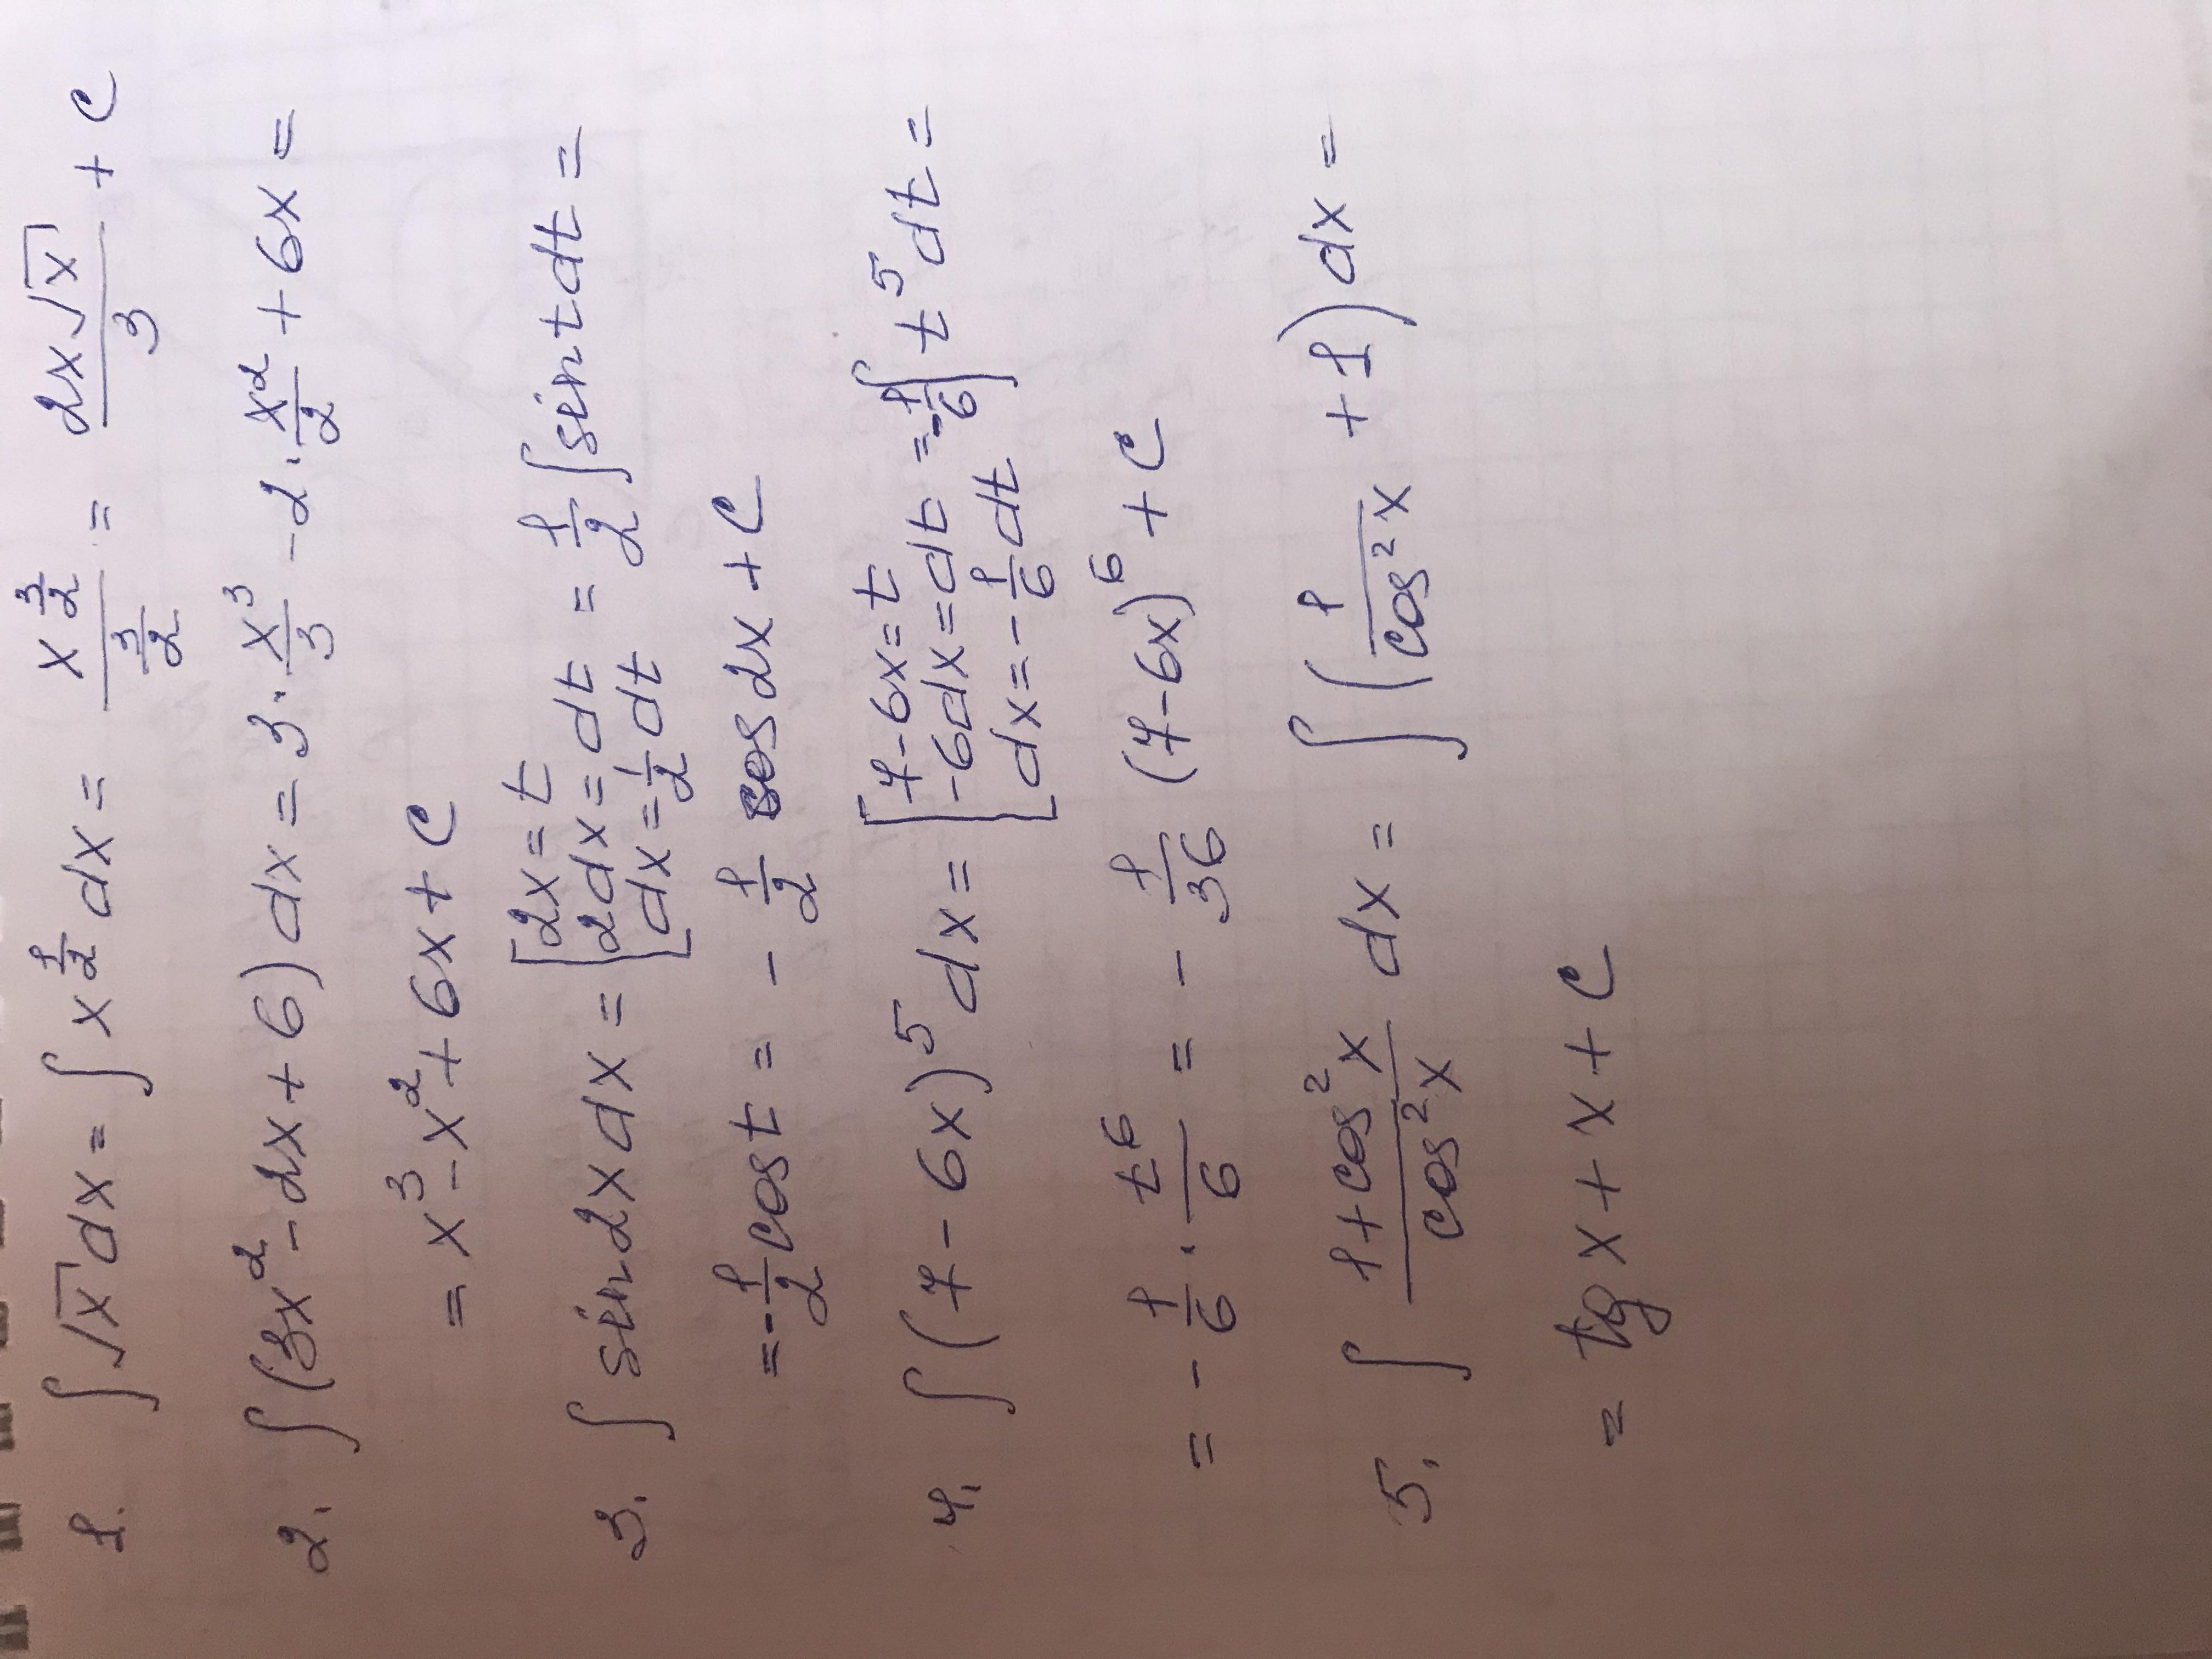 1. ∫√x dx = ∫ x^(1/2) dx = x^(3/2) / (3/2) = 2x√x / 3 + C
2. ∫(3x² - 2x + 6) dx = 3 · x³/3 - 2 · x²/2 + 6x =
= x³ - x² + 6x + C
3. ∫ sin 2x dx = [2x = t 2dx = dt dx = 1/2 dt = 1/2 ∫ sin t dt =
= -1/2 cos t = - 1/2 cos 2x + C
4. ∫(7 - 6x)⁵ dx = [7 - 6x = t -6dx = dt dx = - 1/6 dt = -1/6 ∫ t⁵ dt =
= - 1/6 · t⁶/6 = - 1/36 (7 - 6x)⁶ + C
5. ∫ (1 + cos²x) / cos²x dx = ∫ (1/cos²x + 1) dx =
= tg x + x + C